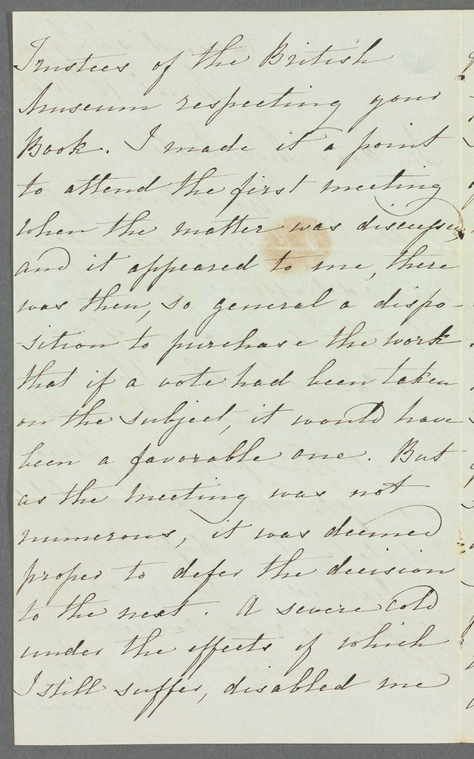 Trustees of the British
Museum respecting your
Book. I made it a point
to attend the first meeting
when the matter was discussed
and it appeared to me, there
was then, so general a dispo-
sition to purchase the work
that if a vote had been taken
on the subject, it would have
been a favorable one. But
as the meeting was not
numerous, it was deemed
proper to defer the decision
to the next. A severe cold
under the effects of which
I still suffer, disabled me